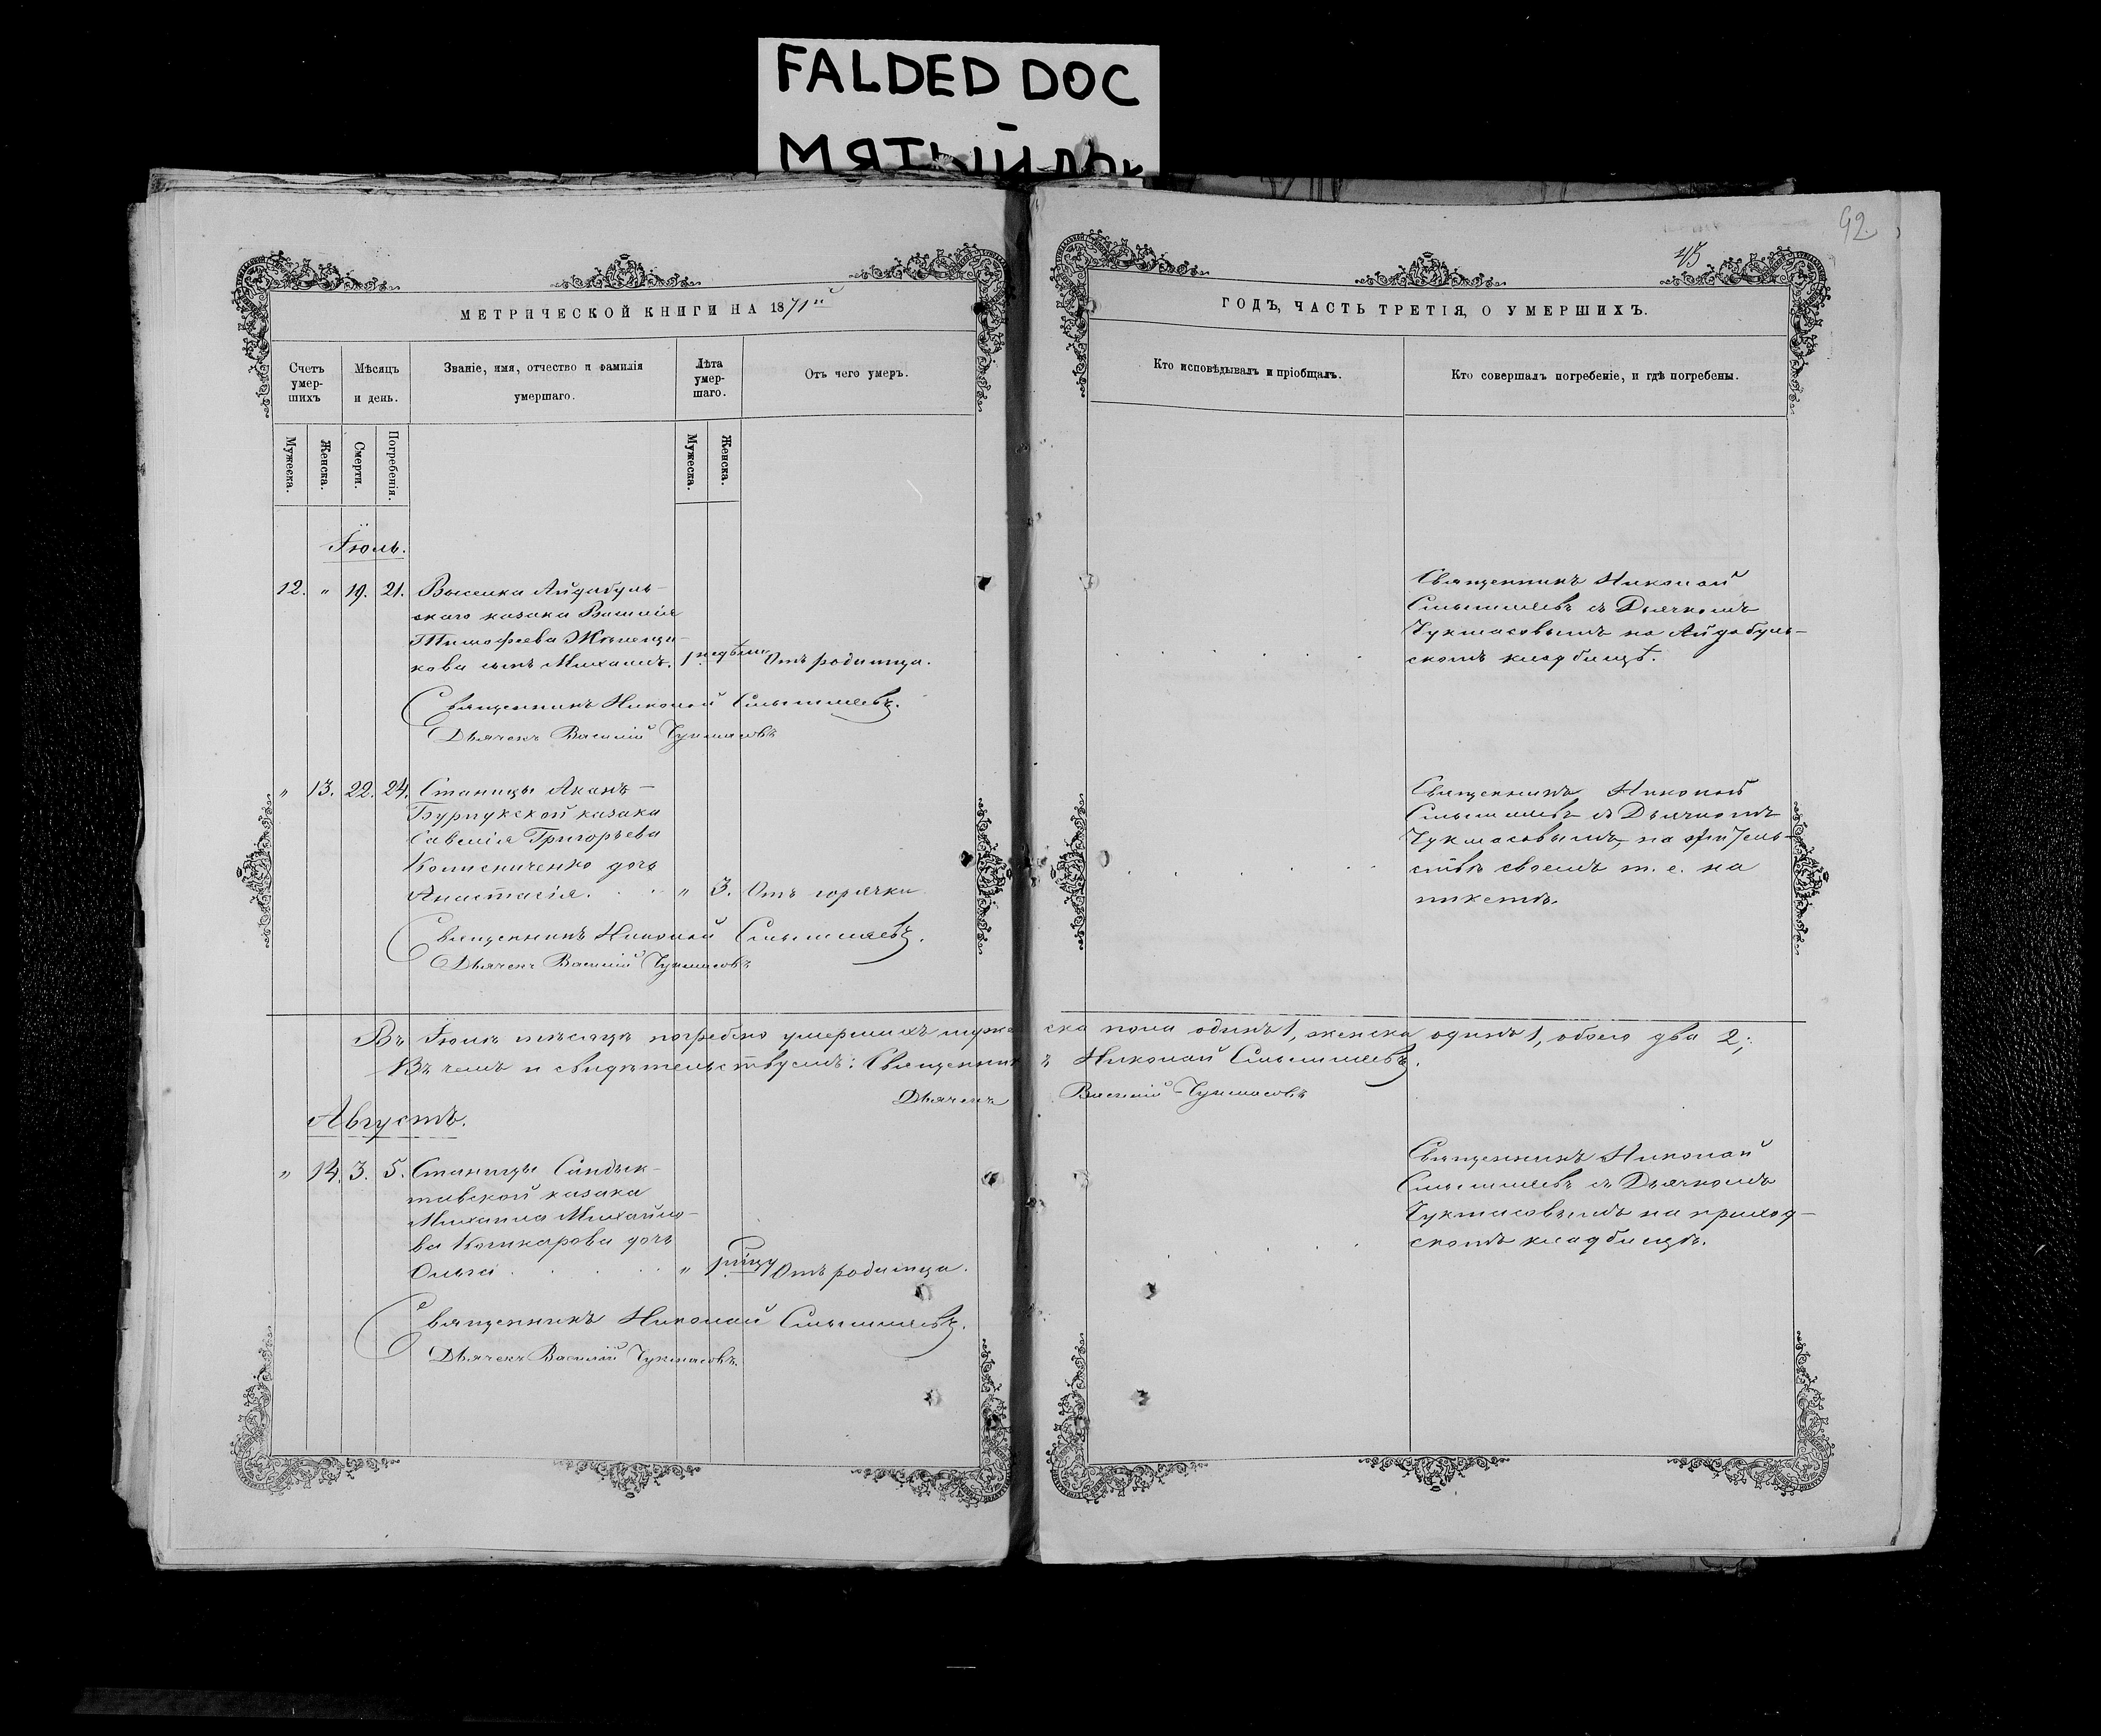 FALDED DOC
МЯТЫЙ ДОК
92.
43
МЕТРИЧЕСКОЙ КНИГИ НА 1871й
Счетъ умер-шихъ
Мѣсяцъ и день.
Званіе, имя, отчество и фамилія умершаго.
Лѣта умер-шаго.
Отъ чего умеръ.
Мужеска.
Женска.
Смерти.
Погребенія.
Мужеска.
Женска.
Іюль.
12. " 19. 21. Выселка Айдабуль-
скаго казака Василія
Тимофеева
кова сынъ Михаилъ. 1 недѣли Отъ родимца.
Священникъ Николай Смышляевъ.
Дьячекъ Василій Чукмасовъ
" 13. 22. 24. Станицы Аканъ-
Бурлукской казака
Савелія Григорьева
Колисниченко дочь
Анастасія. " 3. Отъ горячки
Священникъ Николай Смышляевъ.
Дьячекъ Василій Чукмасовъ
Въ Іюлѣ мѣсяцѣ погребено умершихъ муже
Въ чемъ и свидѣтельствуемъ: Священник
Дьячекъ
Августъ.
" 14. 3. 5. Станицы Сандык-
тавской казака
Михаила Михайло-
ва Кошкарова дочь
Ольга " 1 Отъ родимца.
Священникъ Николай Смышляевъ.
Дьячекъ Василій Чукмасовъ.
ГОДЪ, ЧАСТЬ ТРЕТІЯ, О УМЕРШИХЪ.
Кто исповѣдывалъ и пріобщалъ.
Кто совершалъ погребеніе, и гдѣ погребены.
Священникъ Николай
Смышляевъ съ Дьячкомъ
Чукмасовымъ на Айдабуль-
скомъ кладбищѣ.
Священникъ Николай
Смышляевъ съ Дьячкомъ
Чукмасовымъ, на
своемъ т. е. на
пикетѣ.
ска пола одинъ 1, женска одинъ 1, обоего два 2;
ъ Николай Смышляевъ.
Василій Чукмасовъ
Священникъ Николай
Смышляевъ съ Дьячкомъ
Чукмасовымъ на приход-
скомъ кладбищѣ.